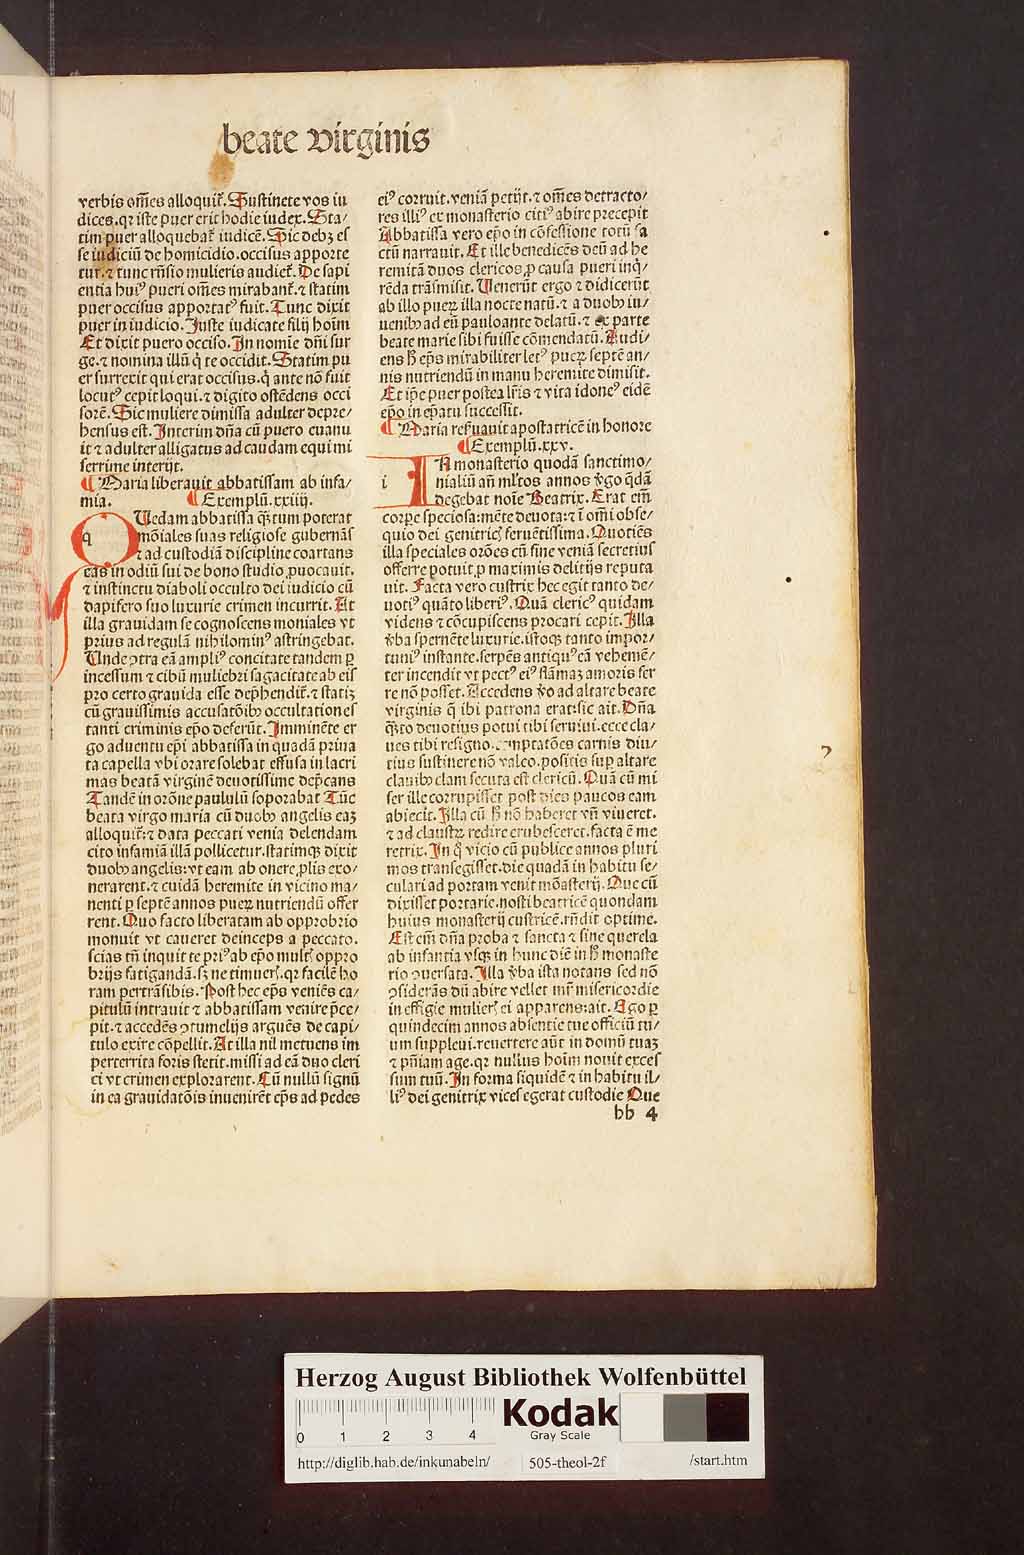 beate virginis
verbis om̄es alloquit̃. Sustinete vos iu
dices. qꝛ iste puer erit hodie iudex. Sta⸗
tim puer alloquebat̃ iudicē. Sic debꝫ es
se iudiciū de homicidio. occisus apporte
tur. ⁊ tunc rñsio mulieris audiet̃. De sapi
entia huiꝰ pueri om̄es mirabant̃. ⁊ statim
puer occisus apportatꝰ fuit. Tunc dixit
puer in iudicio. Iuste iudicate filij hoīm
Et dixit puero occiso. In nomīe dn̄i sur
ge. ⁊ nomina illū q̇ te occidit. Statim pu
er surrexit qui erat occisus. q̇ ante nō fuit
locutꝰ cepit loqui. ⁊ digito ostēdens occi
sorē. Sic muliere dimissa adulter depre⸗
hensus est. Interim dn̄a cū puero euanu
it ⁊ adulter alligatus ad caudam equi mi
serrime interijt.
¶ Maria liberauit abbatissam ab infa⸗
mia. ¶ Exemplū. xxiiij.
q QUedam abbatissa qꝫtum poterat
mōiales suas religiose gubernās
⁊ ad custodiā discipline coartans
eas in odiū sui de bono studio ꝓuocauit.
⁊ instinctu diaboli occulto dei iudicio cū
dapifero suo luxurie crimen incurrit. At
illa grauidam se cognoscens moniales vt
prius ad regulā nihilominꝰ astringebat.
Unde ꝯtra eā ampliꝰ concitate tandem ꝑ
incessum ⁊ cibū muliebri sagacitate ab eis
pro certo grauida esse dep̄hendit̃. ⁊ statiꝫ
cū grauissimis accusatōibꝰ occultationes
tanti criminis ep̄o deferūt. Imminēte er
go aduentu ep̄i abbatissa in quadā priua
ta capella vbi orare solebat effusa in lacri
mas beatā virginē deuotissime dep̄cans
Tandē in orōne paululū soporabat Tūc
beata virgo maria cū duobꝰ angelis eaꝫ
alloquit̃: ⁊ data peccati venia delendam
cito infamiā illā pollicetur. statimqꝫ dixit
duobꝰ angelis: vt eam ab onere ꝓlis exo⸗
nerarent. ⁊ cuidā heremite in vicino ma⸗
nenti ꝑ septē annos pueꝝ nutriendū offer
rent. Quo facto liberatam ab opprobrio
monuit vt caueret deinceps a peccato.
scias tn̄ inquit te priꝰ ab ep̄o multꝭ oppro
brijs fatigandā. sꝫ ne timueꝭ. qꝛ facilē ho
ram pertrāsibis. Post hec ep̄s veniēs ca⸗
pitulū intrauit ⁊ abbatissam venire p̄ce⸗
pit. ⁊ accedēs ꝯtumelijs arguēs de capi⸗
tulo exire cōpellit. At illa nil metuens im
perterrita foris stetit. missi ad eā duo cleri
ci vt crimen explorarent. Cū nullū signū
in ea grauidatōis inuenirēt ep̄s ad pedes
eiꝰ corruit. veniā petijt. ⁊ om̄es detracto⸗
res illiꝰ ex monasterio citiꝰ abire precepit
Abbatissa vero ep̄o in cōfessione totū fa
ctū narrauit. Et ille benedicēs deū ad he
remitā duos clericos ꝓ causa pueri inq̇⸗
rēda trāsmisit. Uenerūt ergo ⁊ didicerūt
ab illo pueꝝ illa nocte natū. ⁊ a duobꝰ iu⸗
uenibꝰ ad eū pauloante delatū. ⁊ ex parte
beate marie sibi fuisse cōmendatū. Audi⸗
ens h̄ ep̄s mirabiliter letꝰ pueꝝ septē an⸗
nis nutriendū in manu heremite dimisit.
Et ip̄e puer postea lr̄is ⁊ vita idoneꝰ eidē
ep̄o in ep̄atu successit.
¶ Maria reẜuauit apostatricē in honore
¶ Exemplū. xxv.
i IN monasterio quodā sanctimo⸗
nialiū añ ml̄tos annos v̊go q̄dā
degebat noīe Beatrix. Erat em̄
corꝑe speciosa: mēte deuota: ⁊ ī om̄i obse⸗
quio dei genitricꝭ feruētissima. Quotiēs
illa speciales orōes cū sine veniā secretius
offerre potuit ꝓ maximis delitijs reputa
uit. Facta vero custrix hec egit tanto de⸗
uotiꝰ quāto liberiꝰ. Quā clericꝰ quidam
videns ⁊ cōcupiscens procari cepit. Illa
v̊ba spernēte luxurie. istoqꝫ tanto impor⸗
tuniꝰ instante. serpēs antiquꝰ eā vehemē⸗
ter incendit vt pectꝰ eiꝰ flāmaꝫ amoris fer
re nō posset. Accedens v̊o ad altare beate
virginis q̄ ibi patrona erat: sic ait. Dn̄a
qꝫto deuotius potui tibi seruiui. ecce cla⸗
ues tibi resigno. temptatōes carnis diu⸗
tius sustinere nō valeo. positis suꝑ altare
clauibꝰ clam secuta est clericū. Quā cū mi
ser ille corrupisset post dies paucos eam
abiecit. Illa cū h̄ nō haberet vn̄ viueret.
⁊ ad claustꝝ redire erubesceret. facta ē me
retrix. In q̇ vicio cū publice annos pluri
mos transegisset. die quadā in habitu se⸗
culari ad portam venit mōasterij. Que cū
dixisset portarie. nosti beatricē quondam
huius monasterij custricē. rn̄dit optime.
Est em̄ dn̄a proba ⁊ sancta ⁊ sine querela
ab infantia vsqꝫ in hunc diē in h̄ monaste
rio ꝯuersata. Illa v̊ba ista notans sed nō
ꝯsiderās dū abire vellet mr̄ misericordie
in effigie mulierꝭ ei apparens: ait. Ego ꝑ
quindecim annos absentie tue officiū tu⸗
um suppleui. reuertere aūt in domū tuaꝫ
⁊ pn̄iam age. qꝛ nullus hoīm nouit exces
sum tuū. In forma siquidē ⁊ in habitu il⸗
liꝰ dei genitrix vices egerat custodie Que
bb 4
Herzog August Bibliothek Wolfenbüttel
0 1 2 3 4
Kodak
Gray Scale
http://diglib.hab.de/inkunabeln/ 505-theol-2f /start.htm